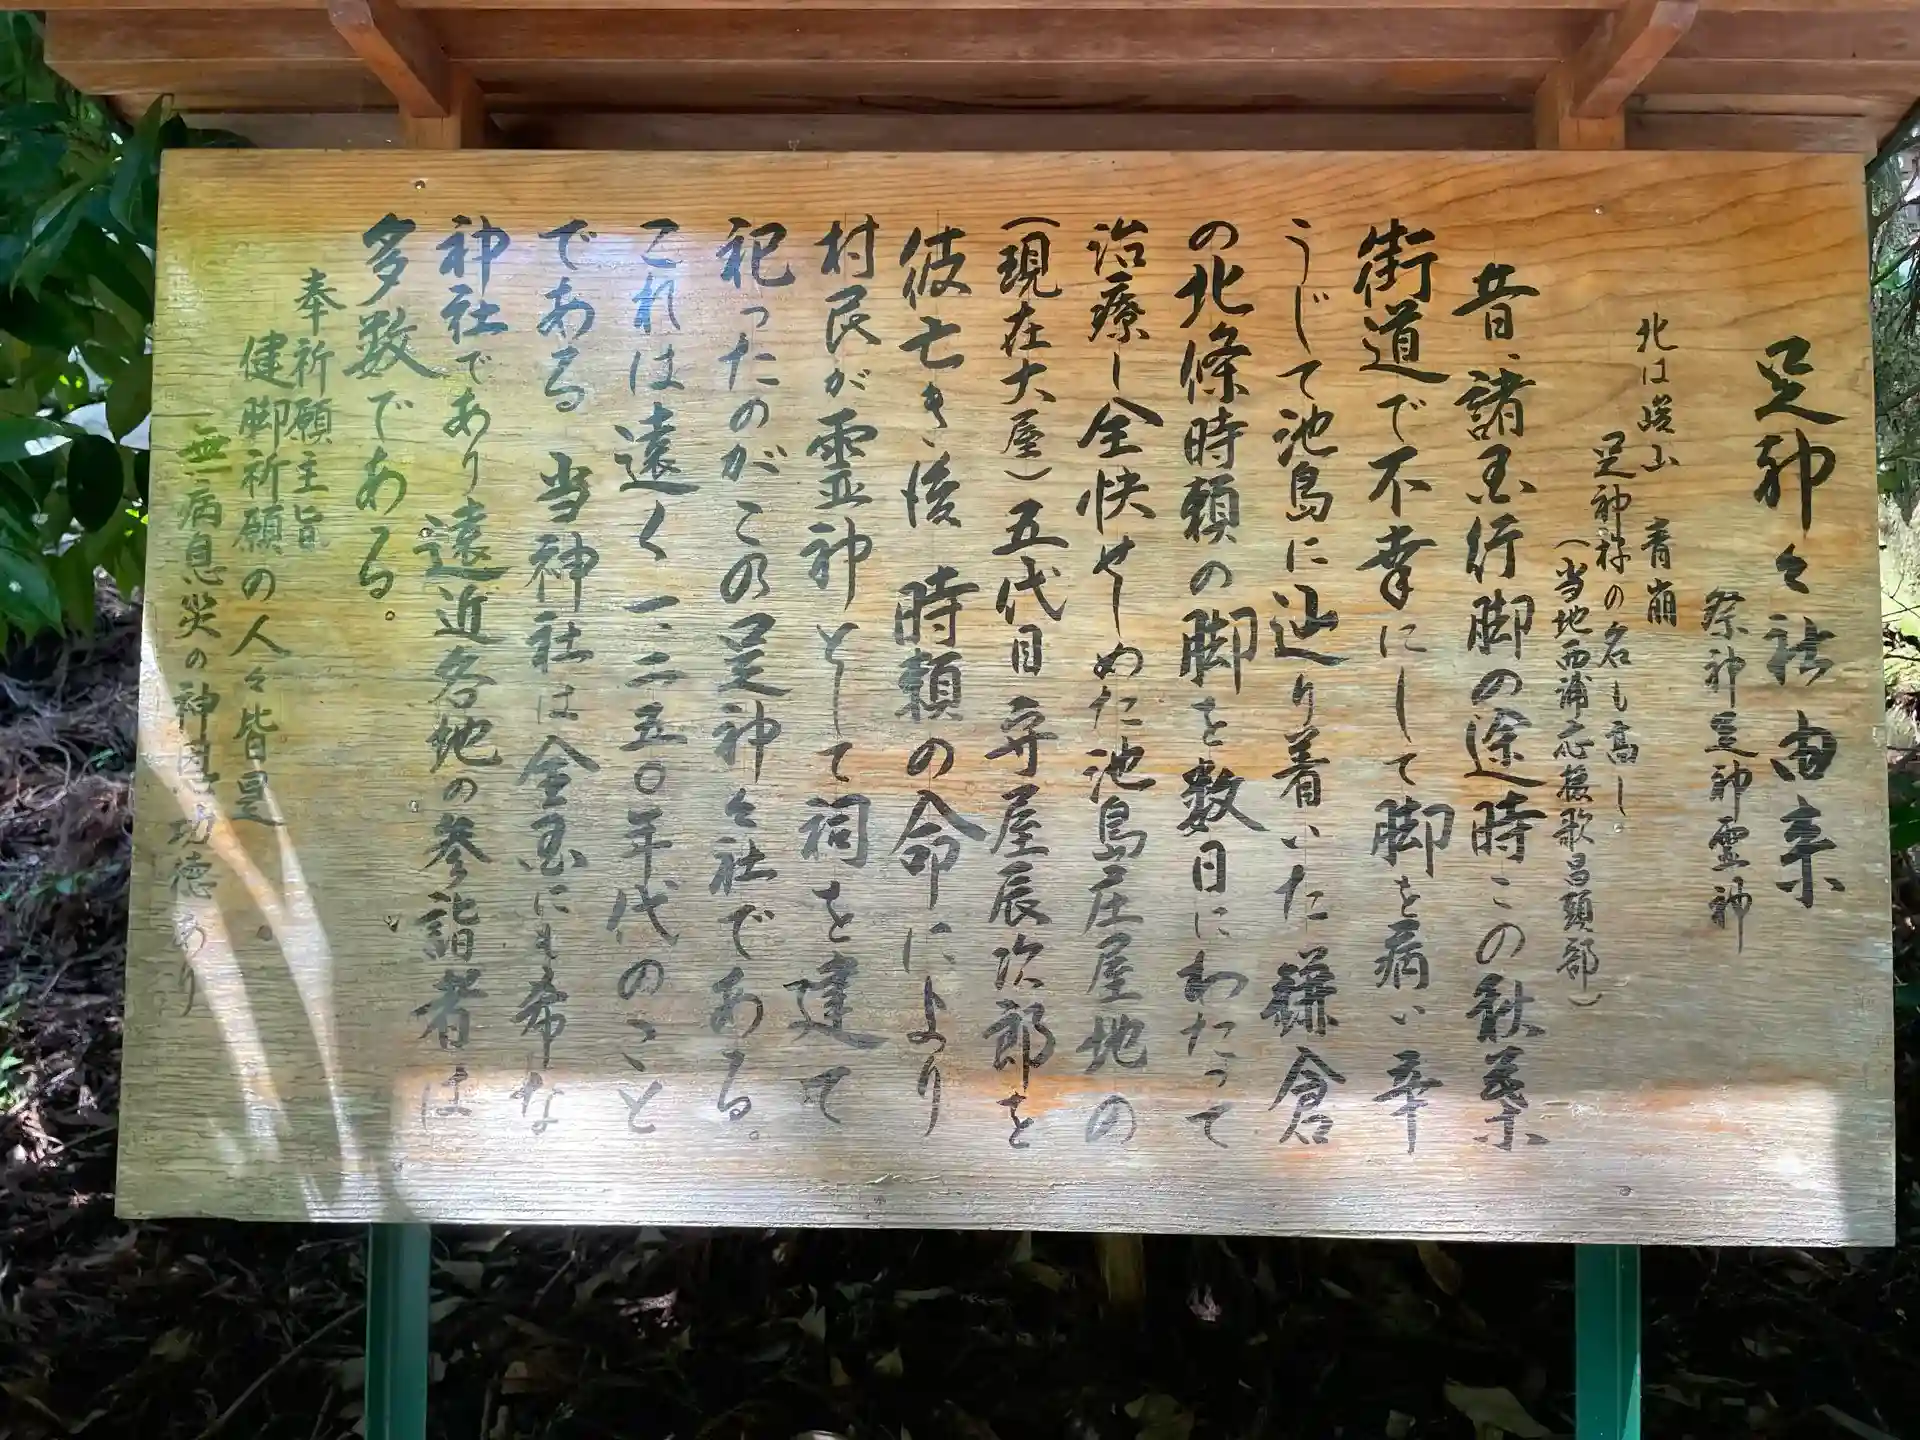 足神々社由来
祭神足神霊神
北は峠山 青崩
足神様の名も高し
(当地西浦応援歌冒頭部)
昔、諸国行脚の途時この秋葉
街道で不幸にして脚を病い辛
うじて池島に辿り着いた鎌倉
の北條時頼の脚を数日にわたって
治療し全快せしめた池島庄屋地の
(現在大屋)五代目守屋辰次郎を
彼亡き後 時頼の命により
村民が霊神として祠を建て
祀ったのがこの足神々社である。
これは遠く一、二五〇年代のこと
である 当神社は全国にも希な
神社であり遠近各地の参詣者は
多数である。
奉祈願主旨
健脚祈願の人々皆是
無病息災の神恩功徳あり